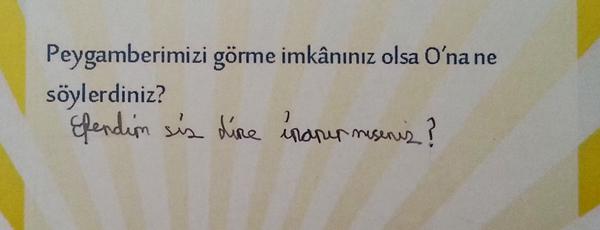 Peygamberimizi görme imkânınız olsa O'na ne
söylerdiniz?
Efendim siz dine inanır mısınız?